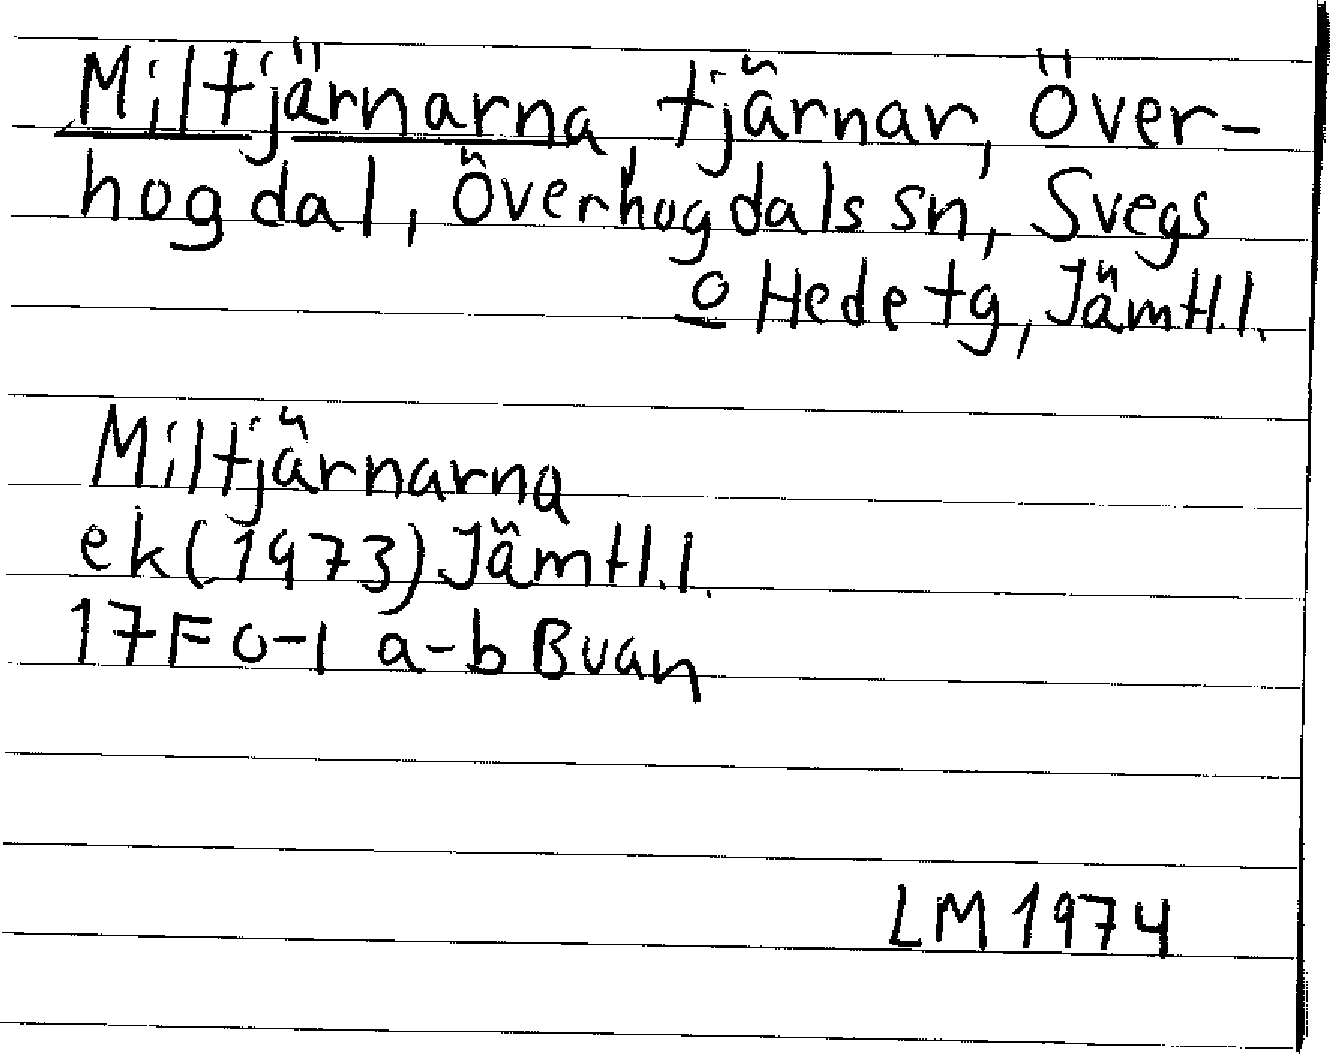 Miltjärnarna tjärnar, Över-
hogdal, Överhogdals sn, Svegs
o Hede tg, Jämtl.l.
Miltjärnarna
ek (1973) Jämtl.l.
17F 0-1 a-b Buan
LM 1974